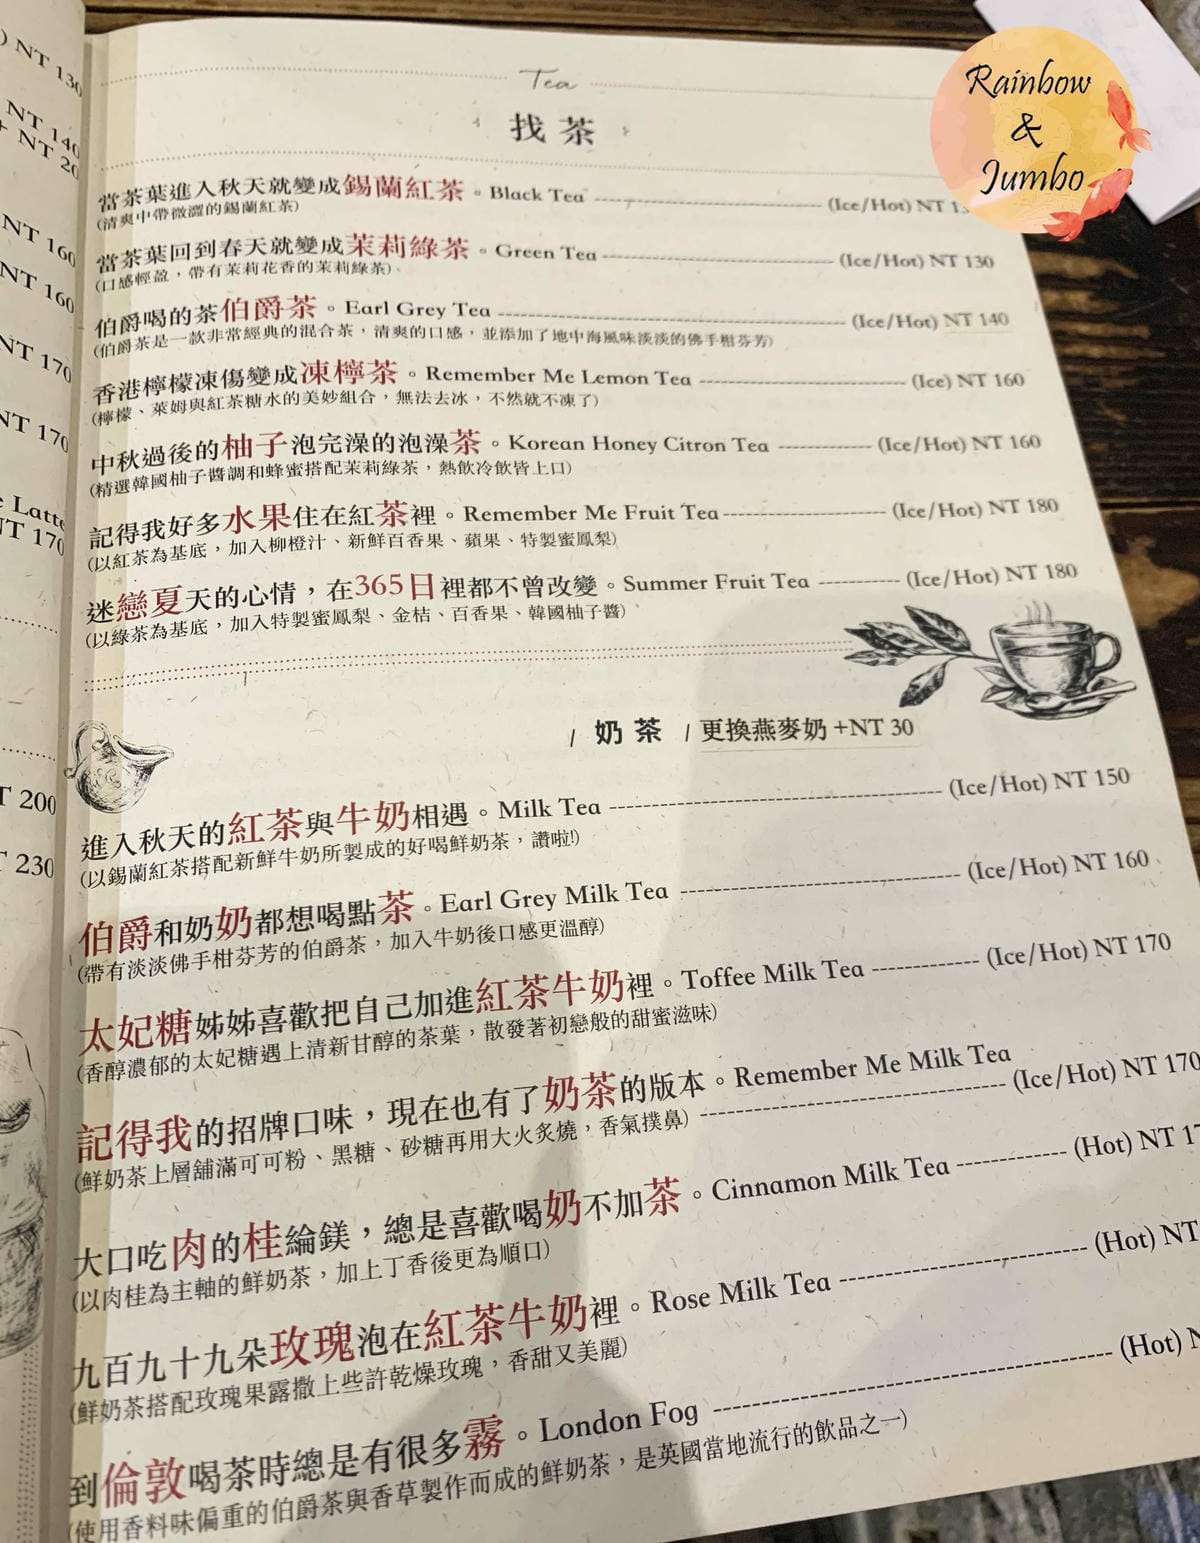 ) NT 130
NT 140
+ NT 20
NT 160
NT 160
NT 170
NT 170
e Latte
NT 170
T 200
T 230
Rainbow
&
Jumbo
Tea
找茶
當茶葉進入秋天就變成錫蘭紅茶。Black Tea (Ice/Hot) NT
(清爽中帶微澀的錫蘭紅茶)
當茶葉回到春天就變成茉莉綠茶。Green Tea (Ice/Hot) NT 130
(口感輕盈，帶有茉莉花香的茉莉綠茶)
伯爵喝的茶伯爵茶。Earl Grey Tea (Ice/Hot) NT 140
(伯爵茶是一款非常經典的混合茶，清爽的口感，並添加了地中海風味淡淡的佛手柑芬芳)
香港檸檬凍傷變成凍檸茶。Remember Me Lemon Tea (Ice) NT 160
(檸檬、萊姆與紅茶糖水的美妙組合，無法去冰，不然就不凍了)
中秋過後的柚子泡完澡的泡澡茶。Korean Honey Citron Tea (Ice/Hot) NT 160
(精選韓國柚子醬調和蜂蜜搭配茉莉綠茶，熱飲冷飲皆上口)
記得我好多水果住在紅茶裡。Remember Me Fruit Tea (Ice/Hot) NT 180
(以紅茶為基底，加入柳橙汁、新鮮百香果、蘋果、特製蜜鳳梨)
迷戀夏天的心情，在365日裡都不曾改變。Summer Fruit Tea (Ice/Hot) NT 180
(以綠茶為基底，加入特製蜜鳳梨、金桔、百香果、韓國柚子醬)
/ 奶茶 / 更換燕麥奶 +NT 30
進入秋天的紅茶與牛奶相遇。Milk Tea (Ice/Hot) NT 150
(以錫蘭紅茶搭配新鮮牛奶所製成的好喝鮮奶茶，讚啦!)
伯爵和奶奶都想喝點茶。Earl Grey Milk Tea (Ice/Hot) NT 160
(帶有淡淡佛手柑芬芳的伯爵茶，加入牛奶後口感更溫醇)
太妃糖姊姊喜歡把自己加進紅茶牛奶裡。Toffee Milk Tea (Ice/Hot) NT 170
(香醇濃郁的太妃糖遇上清新甘醇的茶葉，散發著初戀般的甜蜜滋味)
記得我的招牌口味，現在也有了奶茶的版本。Remember Me Milk Tea (Ice/Hot) NT 170
(鮮奶茶上層舖滿可可粉、黑糖、砂糖再用大火炙燒，香氣撲鼻)
大口吃肉的桂綸鎂，總是喜歡喝奶不加茶。Cinnamon Milk Tea (Hot) NT 17
(以肉桂為主軸的鮮奶茶，加上丁香後更為順口)
九百九十九朵玫瑰泡在紅茶牛奶裡。Rose Milk Tea (Hot) NT
(鮮奶茶搭配玫瑰果露撒上些許乾燥玫瑰，香甜又美麗)
到倫敦喝茶時總是有很多霧。London Fog (Hot) N
(使用香料味偏重的伯爵茶與香草製作而成的鮮奶茶，是英國當地流行的飲品之一)